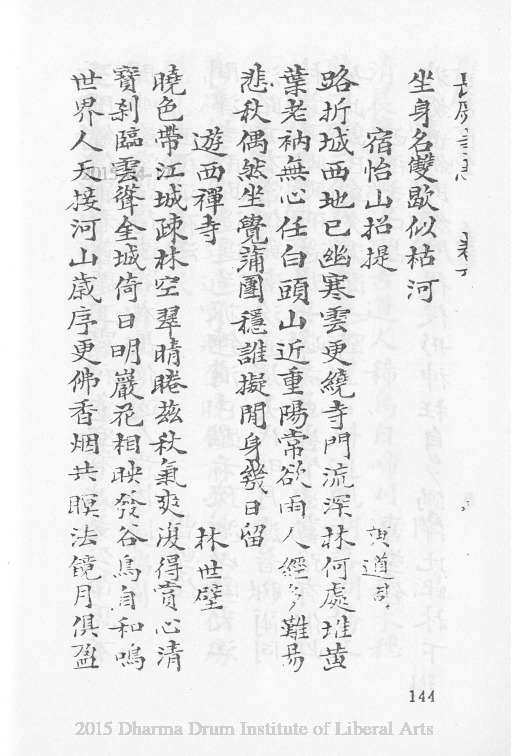 長慶
坐身名雙歇似枯河
宿怡山招提
黃道
路折城西地已幽寒雲更繞寺門流深林何處堆黃
葉老衲無心任白頭山近重陽常欲雨人經多難易
悲秋偶然坐覺蒲團穩誰擬閒身幾日留
遊西禪寺 林世璧
曉色帶江城疎林空翠晴睠茲秋氣爽復得賞心清
寶刹臨雲聳金城倚日明巖花相映發谷鳥自和鳴
世界人天接河山歲序更佛香烟共暝法鏡月俱盈
144
2015 Dharma Drum Institute of Liberal Arts